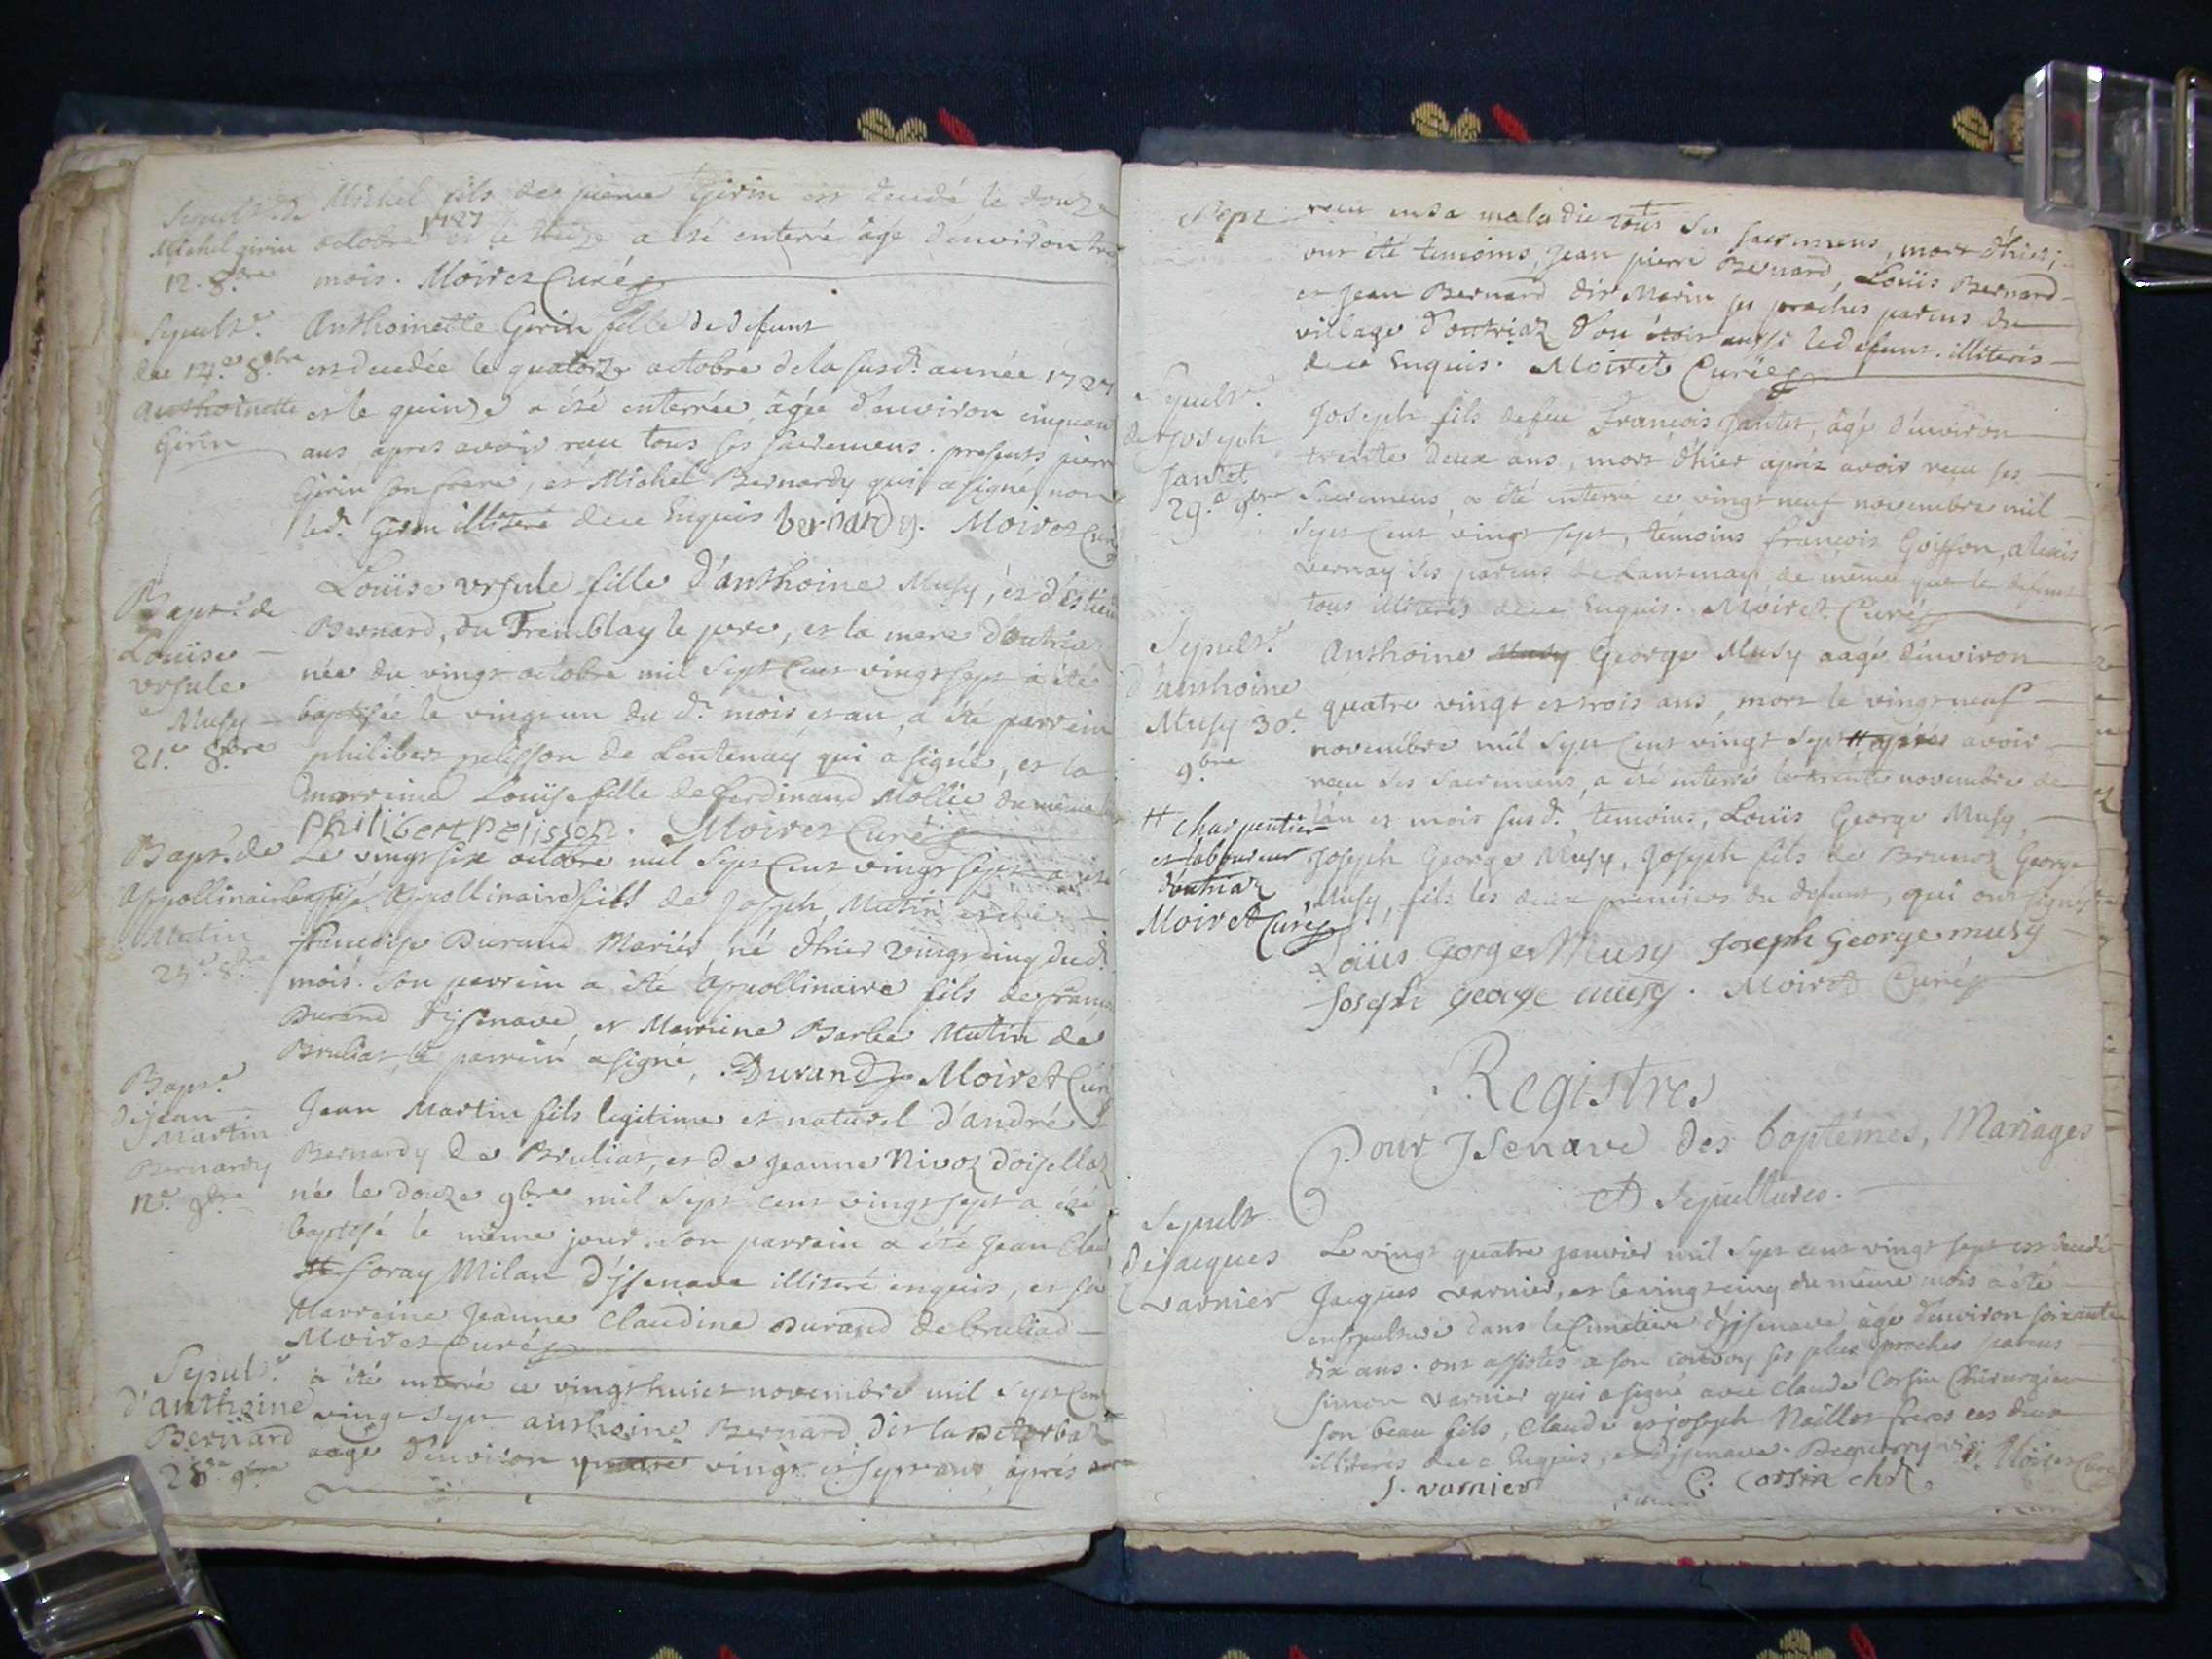 Sepult.re de
Michel girin
12. 8.bre
Michel fils de pierre Girin est decedé le douze
octobre 1727 et le treize a été enterré âgé d'environ
mois. Moiret Curé
Sepult.e
du 14.e 8.bre
Anthoinette
Girin
Anthoinette Girin fille de defunt
est decedée le quatorze octobre de la susd.e année 1727
et le quinze a été enterrée âgée d'environ cinquan
ans, apres avoir reçu tous ses sacremens. presents pierre
Girin son frere, et Michel Bernardy qui a signé, non
led. Girin illiteré de ce enquis bernardy. Moiret Curé
Bapt.e de
Louïse
ursule
Musy
21.e 8.bre
Louïse ursule fille d'anthoine Musy, et d'Estien
Bernard, du Tremblay le pere, et la mere d'outriaz
née du vingt octobre mil sept cent vingt sept a été
baptisée le vingt un du d. mois et an, a été parrein
philibert pelisson de Lentenay qui a signé, et la
marreine Louïse fille de ferdinand Mollie du même
Philibert Pelisson. Moiret Curé
Bapt.e de
Appollinaire
Mutin
25.e 8.bre
Le vingt six octobre mil sept cent vingt sept a été
baptisé Appollinaire fils de Joseph Mutin et de
francoise Durand Mariés, né d'hier vingt cinq dud.
mois. Son parrein a été Appollinaire fils de françois
Durand d'ysenave, et Marreine Barbe Mutin de
Bruliat, le parrein a signé, Durand Moiret Curé
Bapt.e
de jean
Martin
Bernardy
12.e 9.bre
Jean Martin fils legitime et naturel d'andré
Bernardy de Bruliat, et de Jeanne Nivoz d'oisellaz
né le douze 9.bre mil sept cent vingt sept a été
baptisé le même jour. Son parrain a été Jean Clau
foray Milan d'ysenave illiteré enquis, et sa
Marreine Jeanne Claudine Durand de bruliad
Moiret Curé
Sepul.e
d'anthoine
Bernard
28.e 9.bre
a été enterré ce vingt huict novembre mil sept cent
vingt sept anthoine Bernard dit
aagé d'environ quatre vingt et sept ans, aprés avoir
reçu en sa maladie tous ses sacremens, mort d'hier,
ont été temoins, Jean pierre Bernard, Loüis Bernard
et Jean Bernard dit Marin ses proches parens du
village d'outriaz d'ou étoit aussi le defunt. illiterés
de ce enquis. Moiret Curé
Sepult.e
de Joseph
Jantet
29.e 9.bre
Joseph fils de feu François Jantet, âgé d'environ
trente deux ans, mort d'hier aprés avoir reçu ses
sacremens, a été enterré ce vingt neuf novembre mil
sept cent vingt sept, temoins francois Goiffon, alexis
Vernay ses parens de Lantenay de même que le defunt
tous illiterés de ce enquis. Moiret Curé
Sepult.e
d'anthoine
Musy 30.e
9.bre
Anthoine Musy George Musy aagé d'environ
quatre vingt et trois ans, mort le vingt neuf
novembre mil sept cent vingt sept # aprés avoir
reçu ses sacremens, a été enterré le trente novembre de
l'an et mois susd. temoins, Louïs George Musy,
Joseph George Musy, Joseph fils de Brunoz George
Musy, fils les deux premiers du defunt, qui ont signés
# charpentier
et laboureur
d'outriaz
Moiret Curé
Loüis Gorge Musy Joseph George musy
Joseph george musy. Moiret Curé
Registres
Pour Isenave des baptêmes, Mariages
et Sepultures.
Sepult.
de jacques
varnier
Le vingt quatre janvier mil sept cent vingt sept est decedé
Jacques varnier, et le vingt cinq du même mois a été
ensepulturé dans le Cimetiere d'ysenave âgé d'environ soixante
dix ans. ont assistés a son convoy ses plus proches parens
simon varnier qui a signé avec Claude Corsin Chirurgien
son beau fils, Claude et joseph Naillot freres ces deux
illiterés de ce Enquis, et d'ysenave. Moiret Curé
S. varnier C. Corsin chir.